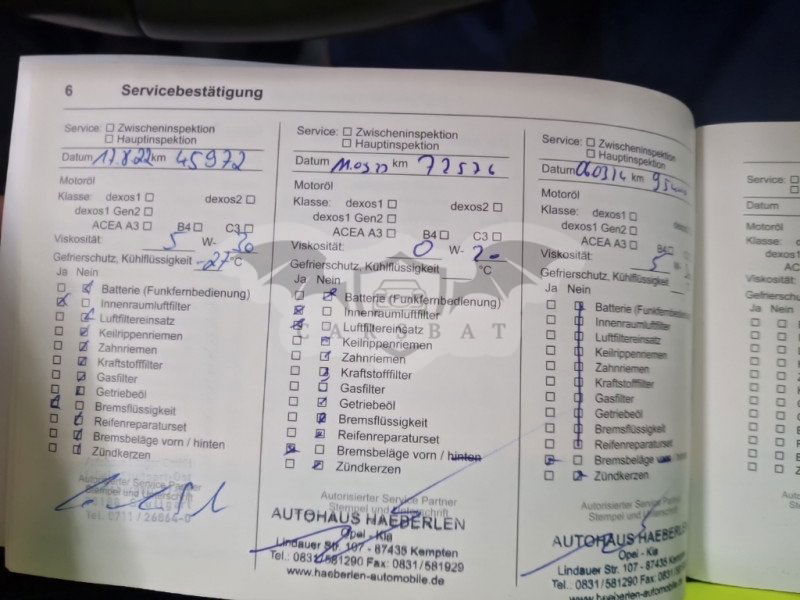 6 Servicebestätigung
Service: Zwischeninspektion
Hauptinspektion
Datum 17.8.22 km 45972
Motoröl
Klasse: dexos1 dexos2
dexos1 Gen2
ACEA A3 B4 C3
Viskosität: 5 W- 30
Gefrierschutz, Kühlflüssigkeit -27 °C
Ja Nein
Batterie (Funkfernbedienung)
Innenraumluftfilter
Luftfiltereinsatz
Keilrippenriemen
Zahnriemen
Kraftstofffilter
Gasfilter
Getriebeöl
Bremsflüssigkeit
Reifenreparaturset
Bremsbeläge vorn / hinten
Zündkerzen
Autorisierter Service Partner
Stempel und Unterschrift
Tel. 0711 / 26864-0
Service: Zwischeninspektion
Hauptinspektion
Datum 11.03.23 km 72576
Motoröl
Klasse: dexos1 dexos2
dexos1 Gen2
ACEA A3 B4 C3
Viskosität: 0 W- 20
Gefrierschutz, Kühlflüssigkeit °C
Ja Nein
Batterie (Funkfernbedienung)
Innenraumluftfilter
Luftfiltereinsatz
Keilrippenriemen
Zahnriemen
Kraftstofffilter
Gasfilter
Getriebeöl
Bremsflüssigkeit
Reifenreparaturset
Bremsbeläge vorn / hinten
Zündkerzen
Autorisierter Service Partner
Stempel und Unterschrift
AUTOHAUS HAEBERLEN
Opel - Kia
Lindauer Str. 107 - 87435 Kempten
Tel.: 0831/581290 Fax: 0831/581929
www.haeberlen-automobile.de
Service: Zwischeninspektion
Hauptinspektion
Datum km
Motoröl
Klasse: dexos1
dexos1 Gen2
ACEA A3 B4
Viskosität: 5 W-
Gefrierschutz, Kühlflüssigkeit
Ja Nein
Batterie (Funkfernbedien
Innenraumluftfilter
Luftfiltereinsatz
Keilrippenriemen
Zahnriemen
Kraftstofffilter
Gasfilter
Getriebeöl
Bremsflüssigkeit
Reifenreparaturset
Bremsbeläge vorn / hinte
Zündkerzen
Autorisierter Service
Stempel und Unters
AUTOHAUS HAEBERLEN
Opel - Kia
Lindauer Str. 107 - 87435 Kem
Tel.: 0831/581290 Fax: 0831/58
www.haeberlen-automobile
Service:
Datum
Motoröl
Klasse:
Viskosität:
Gefriersch
Ja Nein
CARSBAT